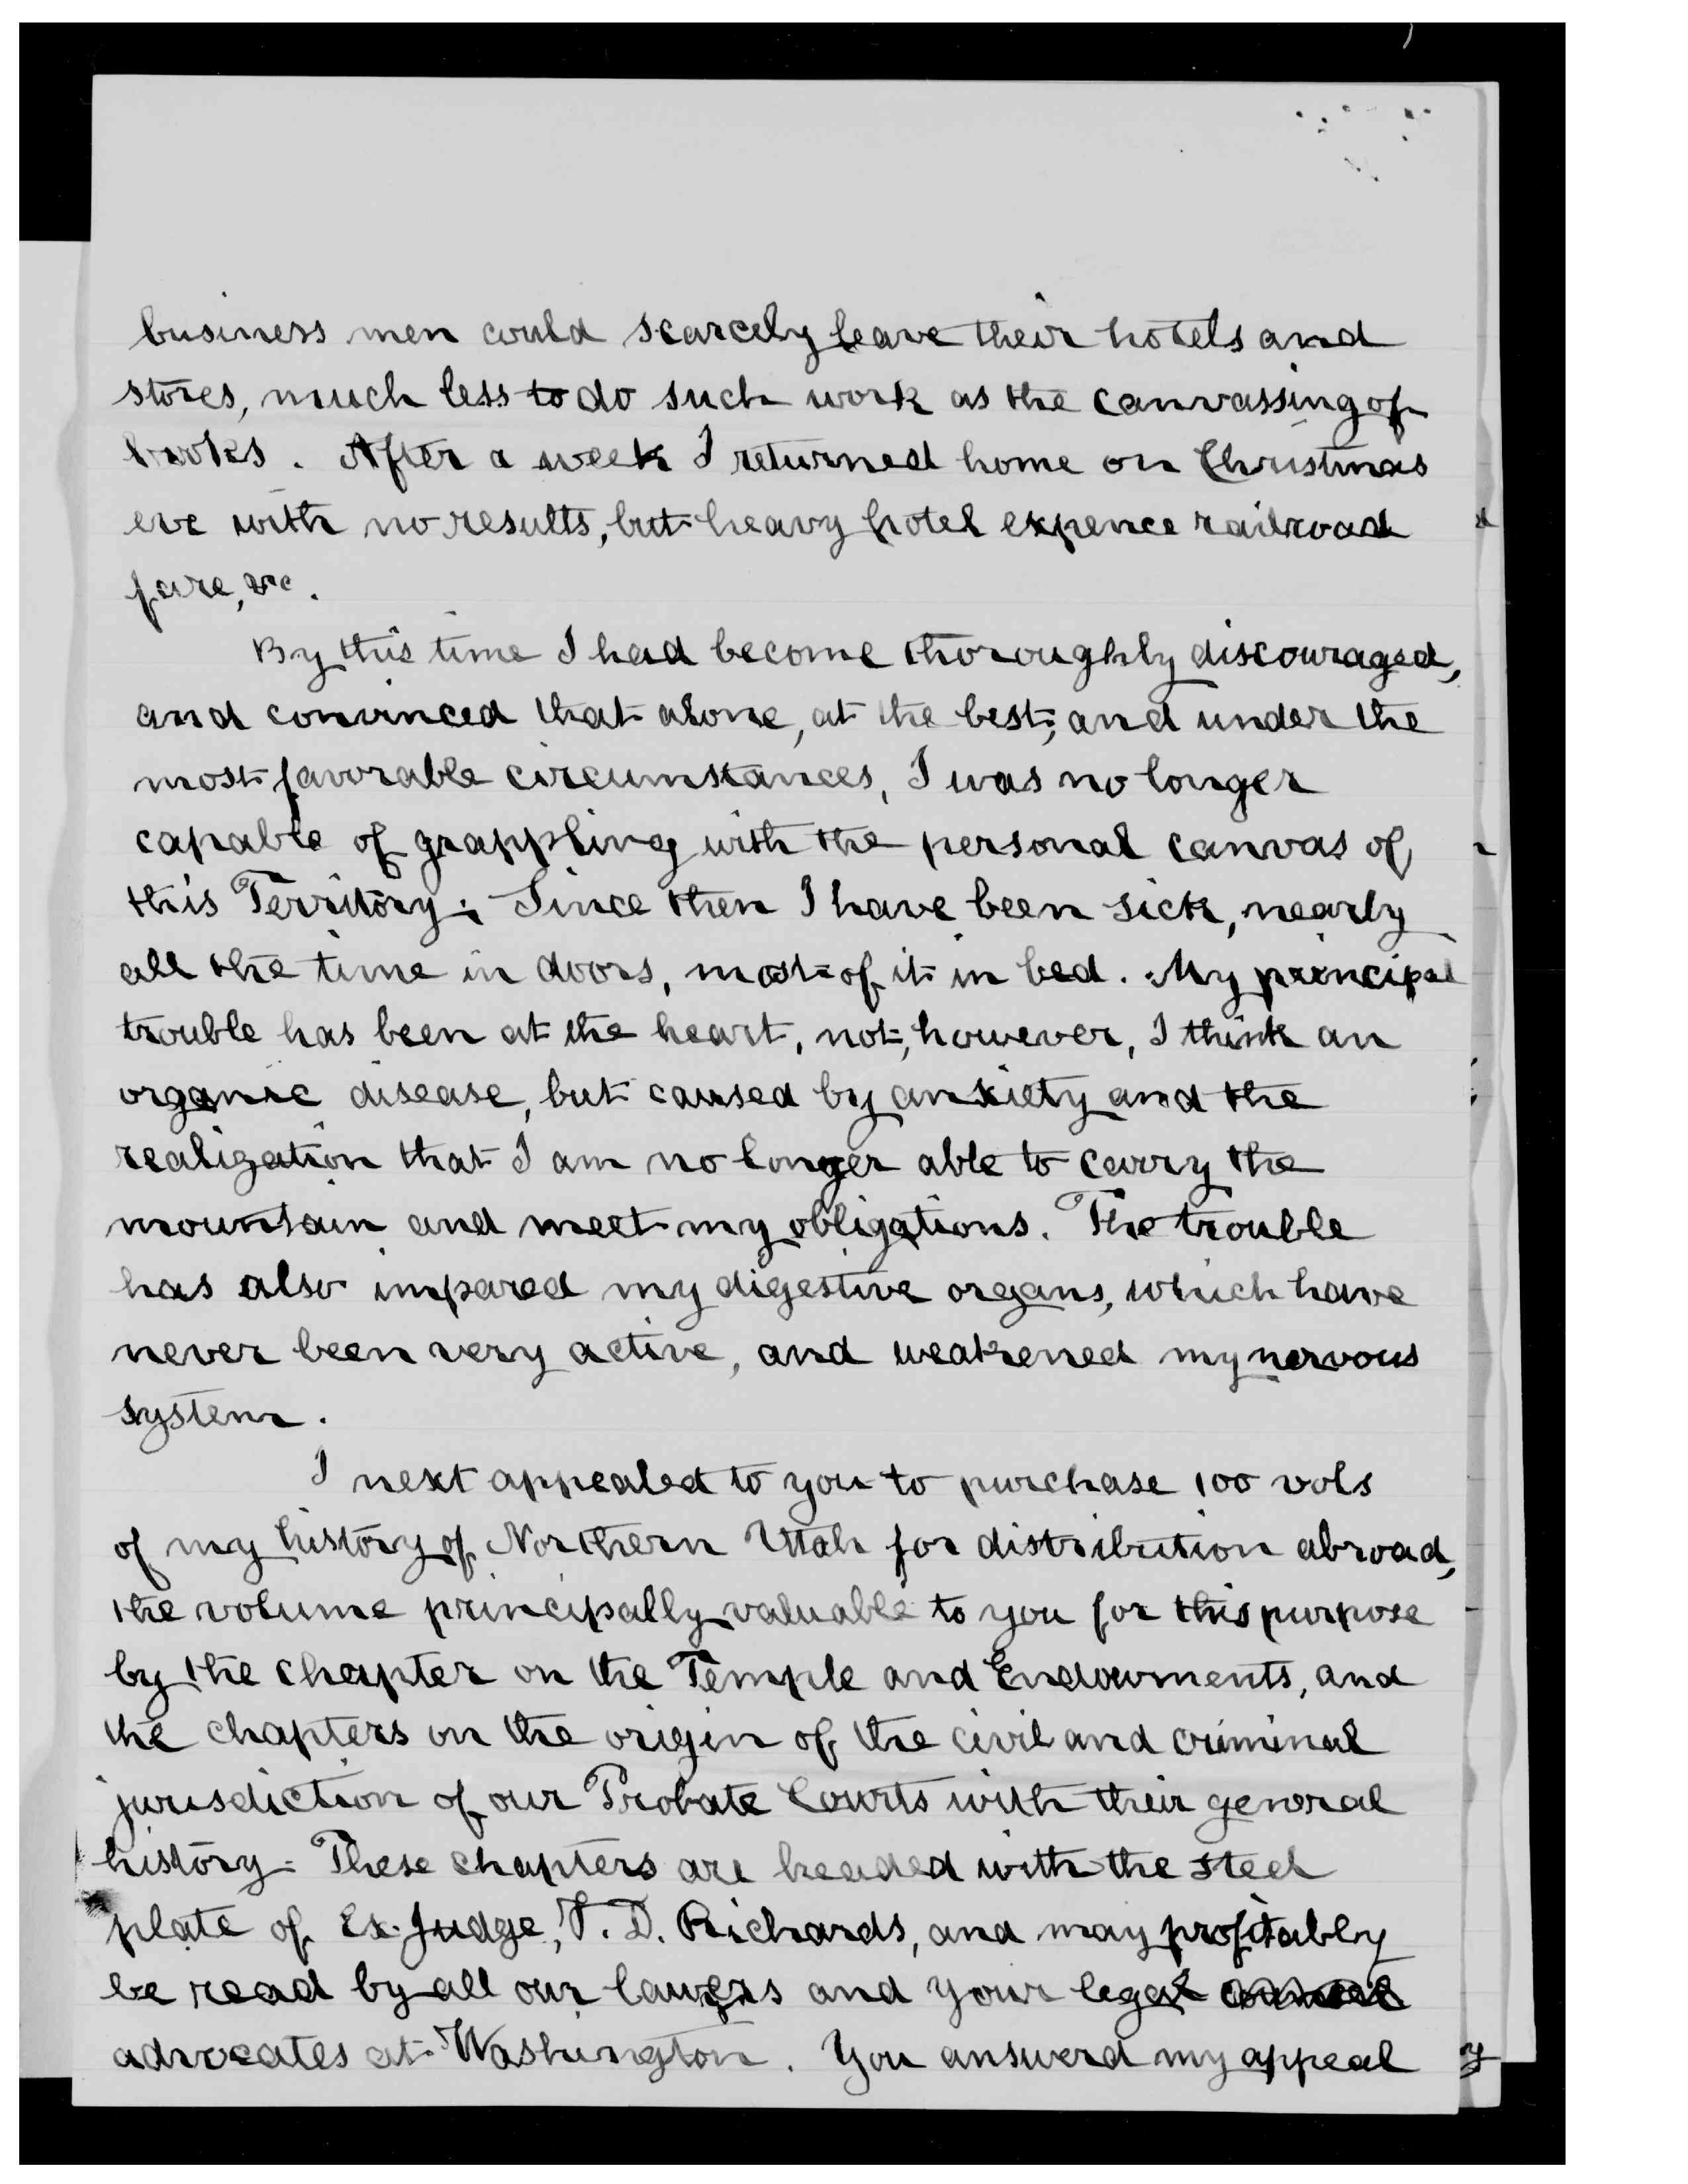 business men could scarcely leave their hotels and
stores, much less to do such work as the canvassing of
books. After a week I returned home on Christmas
eve with no results, but heavy hotel expence railroad
fare, &c.
By this time I had become thoroughly discouraged,
and convinced that alone, at the best, and under the
most favorable circumstances, I was no longer
capable of grappling with the personal canvas of
this Territory. Since then I have been sick, nearly
all the time in doors, most of it in bed. My principal
trouble has been at the heart, not, however, I think an
organic disease, but caused by anxiety and the
realization that I am no longer able to carry the
mountain and meet my obligations. The trouble
has also impared my digestive organs, which have
never been very active, and weakened my nervous
system.
I next appealed to you to purchase 100 vols
of my history of Northern Utah for distribution abroad,
the volume principally valuable to you for this purpose
by the chapter on the Temple and Endowments, and
the chapters on the origin of the civil and criminal
jurisdiction of our Probate Courts with their general
history. These chapters are headed with the steel
plate of Ex-Judge, F. D. Richards, and may profitably
be read by all our lawyers and your legal
advocates at Washington. You answerd my appeal